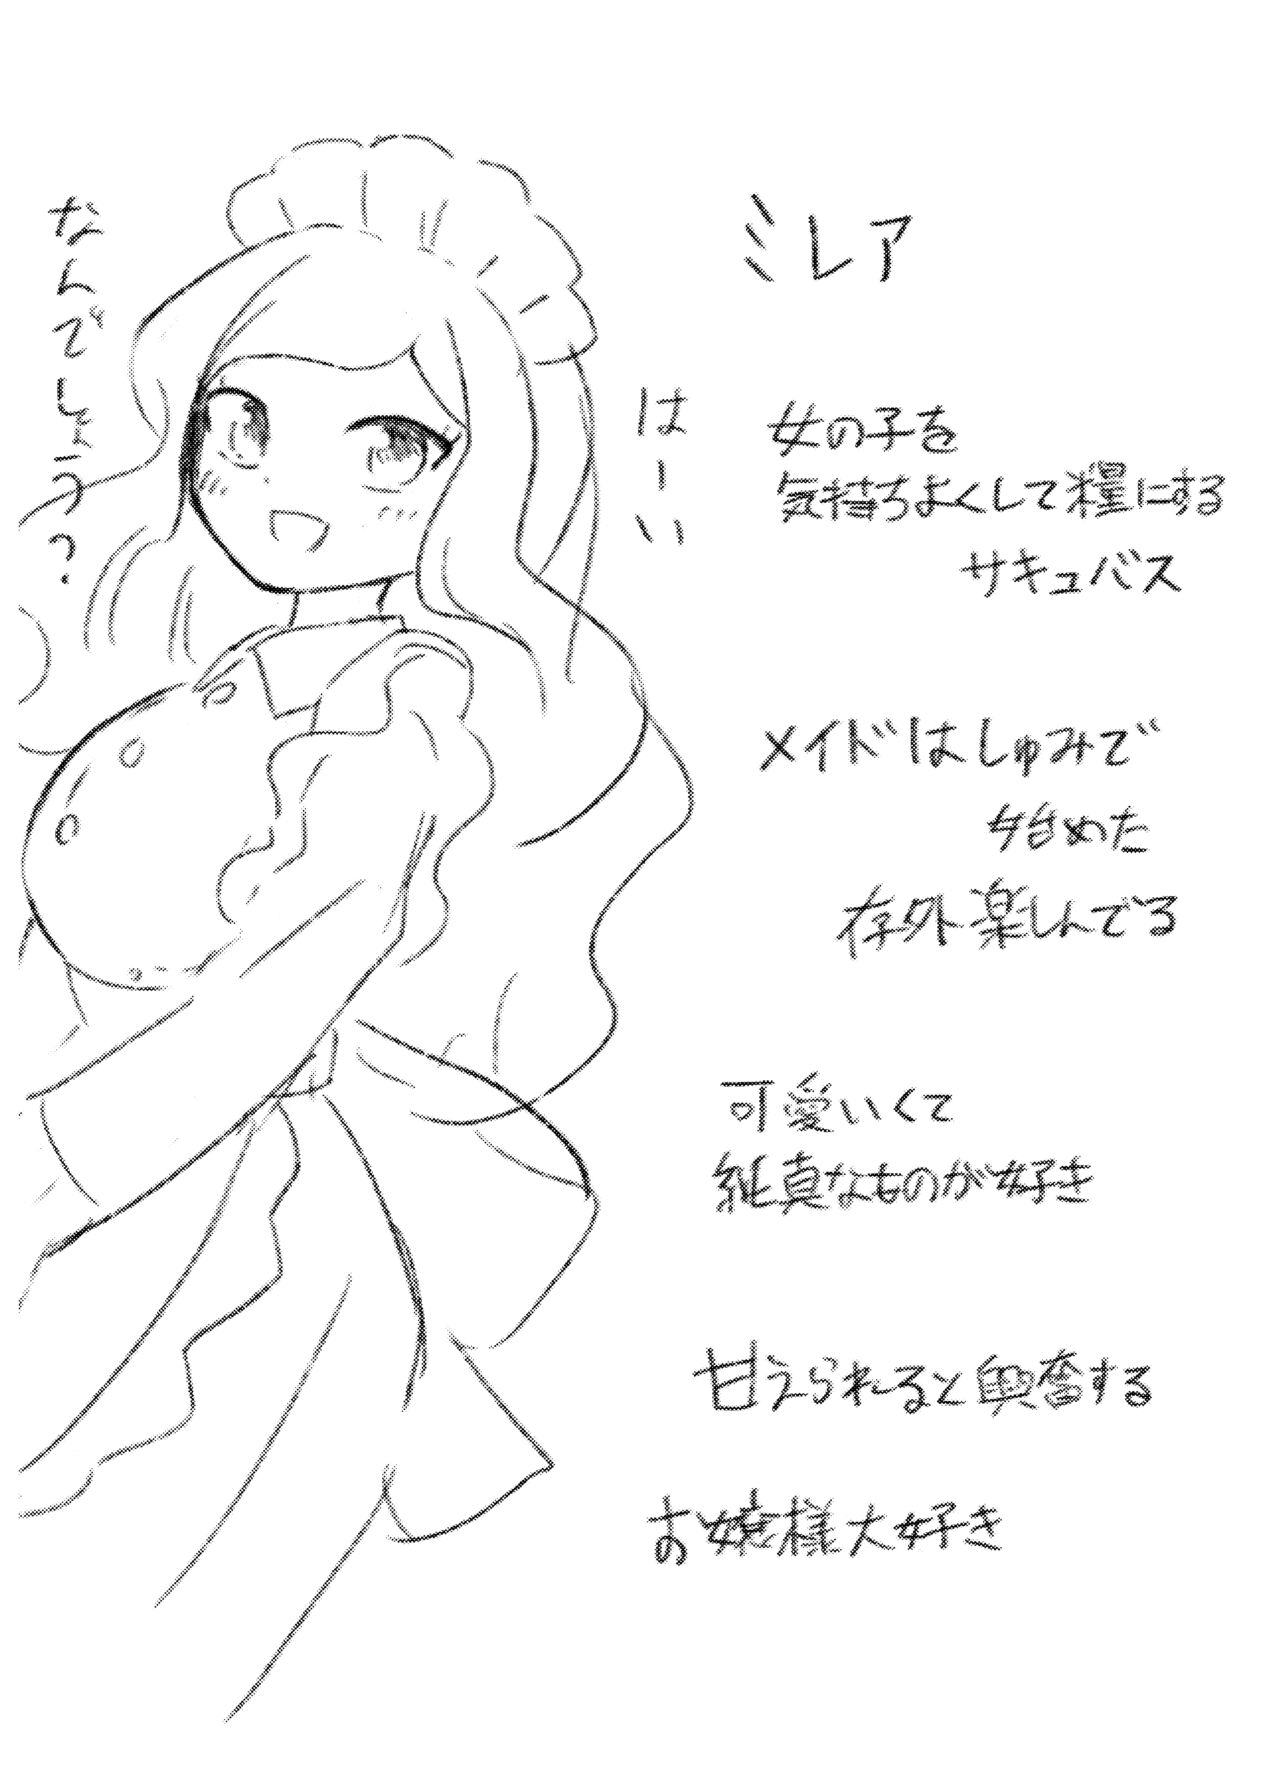 ミレア
はーい
なんでしょうっ?
女の子を
気持ちよくして糧にする
サキュバス
メイドはしゅみで
始めた
存外楽しんでる
可愛いくて
純真なものが好き
甘えられると興奮する
お嬢様大好き